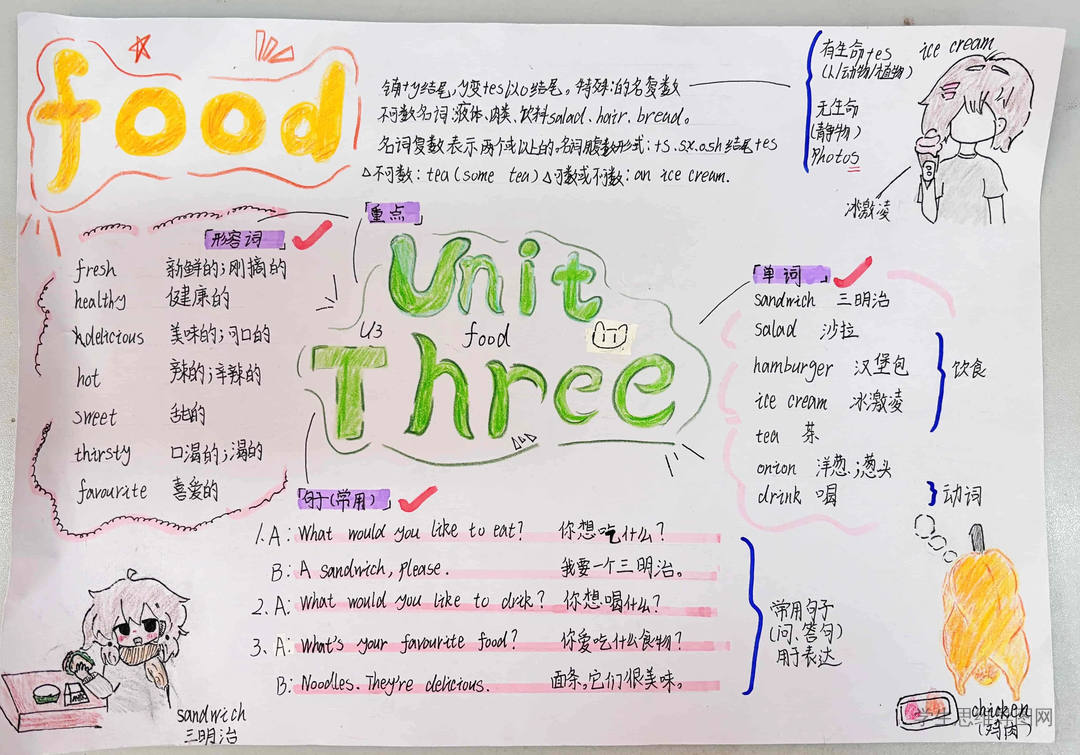 food
辅+y结尾,y变+es以o结尾。特殊:的名复数
不可数名词:液体、肉类、饮料salad、hair、bread。
名词复数表示两个或以上的。名词复数形式:+s.sx.osh结尾+es
△不可数:tea(some tea)△可数或不可数:an ice cream.
有生命+es
(人/动物/植物)
无生命
(静物)
photos
ice cream
冰激凌
重点
形容词
fresh 新鲜的;刚摘的
healthy 健康的
delicious 美味的;可口的
hot 辣的;辛辣的
sweet 甜的
thirsty 口渴的;渴的
favourite 喜爱的
Unit
U3 food
Three
单词
sandwich 三明治
salad 沙拉
hamburger 汉堡包
ice cream 冰激凌
tea 茶
onion 洋葱;葱头
drink 喝
饮食
动词
句子(常用)
1.A: What would you like to eat? 你想吃什么?
B: A sandwich, please. 我要一个三明治。
2.A: What would you like to drik? 你想喝什么?
3、A: What's your favourite food? 你爱吃什么食物?
B: Noodles. They're delicious. 面条。它们很美味。
常用句子
(问、答句)
用于表达
sandwich
三明治
chicken
(鸡肉)
学生思维导图网